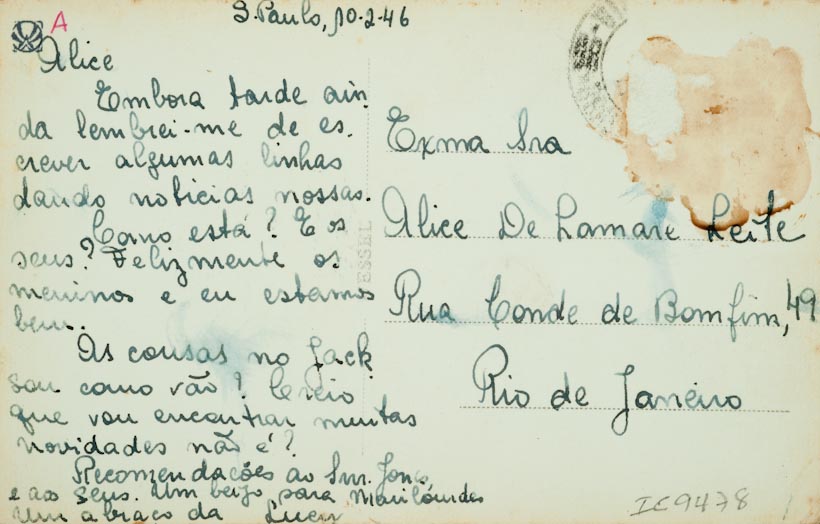 S. Paulo, 10-2-46
A
Alice
Embora tarde ain
da lembrei-me de es.
crever algumas linhas
dando noticias nossas.
Como está? E os
seus? Felizmente os
meninos e eu estamos
bem.
As cousas no Jack
son como vão? Creio
que vou encontrar muitas
novidades não é?
Recomendações ao Snr. Jones
e aos seus. Um beijo para Marilourdes
Um abraço da Lucy
ESSEL
Exma Sra
Alice De Lamare Leite
Rua Conde de Bomfim, 49
Rio de Janeiro
IC9478